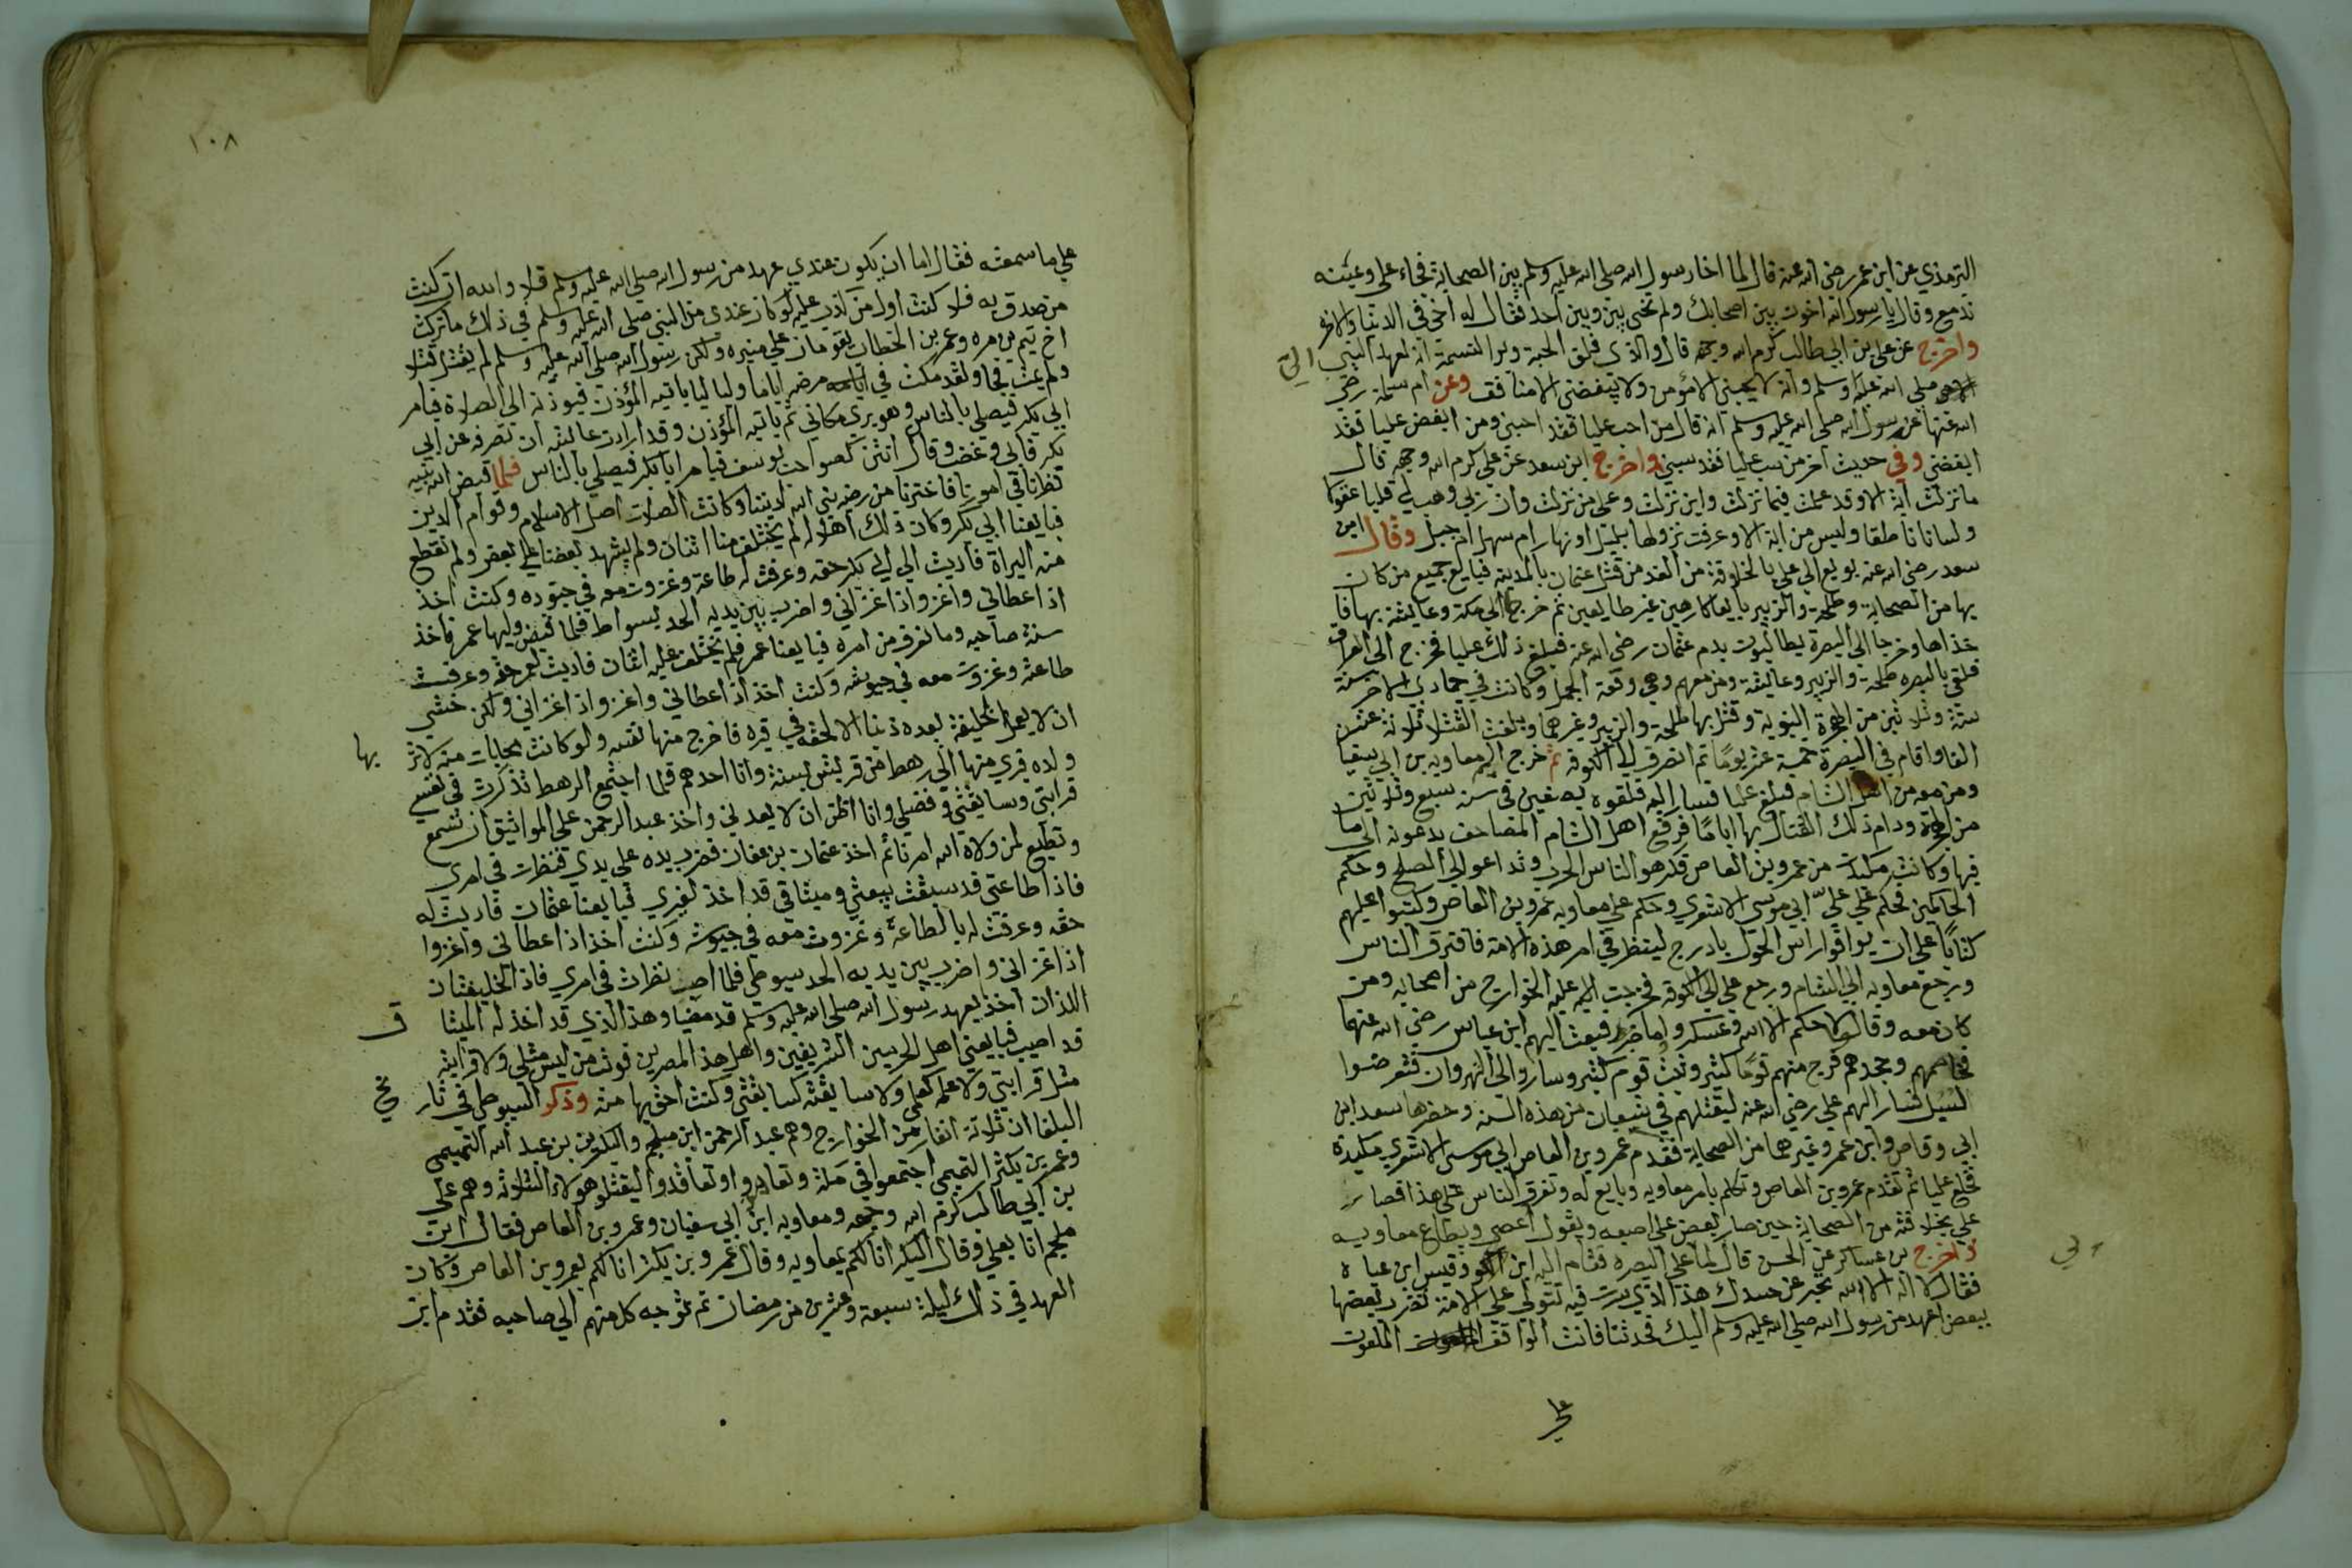 الترمذي عن ابن عمر رضي الله عنه قال لما اخا رسول الله صلى الله عليه وسلم بين الصحابة فجاء علي وعينه
تدمع وقال يا رسول الله اخوت بين اصحابك ولم تخى بيني وبين احد فقال له اخى في الدنيا والاخرة
واخرج عن علي بن ابي طالب كرم الله وجهه قال والذي فلق الحبة وبرا النسمة انه لعهد النبي
صلى الله عليه وسلم وانه لا يحبني الا مؤمن ولا يبغضني الا منافق وعن ام سلمة رضي
الله عنها عن رسول الله صلى الله عليه وسلم انه قال من احب عليا فقد احبني ومن ابغض عليا فقد
ابغضني وفي حديث اخر من سب عليا فقد سبني واخرج ابن سعد عن علي كرم الله وجهه قال
ما نزلت آية الا وقد علمت فيما نزلت واين نزلت وعلى من نزلت وان ربي وهب لي قلبا عقولا
ولسانا ناطقا وليس من اية الا وعرفت نزولها بليل او نهار ام سهل ام جبل وقال ابن
سعد رضي الله عنه بويع الى علي بالخلافة من الغد من قتل عثمان بالمدينة فبايع جميع من كان
بها من الصحابة وطلحة والزبير بايعا كارهين غير طايعين ثم خرج الى مكة وعايشة بها فا
خذاها وخرجا الى البصرة يطالبوت بدم عثمان رضي الله عنه فبلغ ذلك عليا فخرج الى العراق
فلقى بالبصره طلحة والزبير وعايشة ومن معهم وهي وقعة الجمل وكانت في جمادي الاخر سنة
ستة وثلاثين من الهجرة النبوية وقتل بها طلحة والزبير وغيرهما وبلغت القتلا ثلاثة عشر
الفا واقام في البصرة خمسة عشر يوما ثم انصرف الى الكوفه ثم خرج اليهم معاويه بن ابي سفيا
ومن معه من اهل الشام فبلغ عليا فسار اليه فلقوه بصفين في سنة سبع وثلاثين
من الهجرة ودام ذلك القتال بها اياما فرفع اهل الشام المصاحف يدعونه الى ما
فيها وكانت مكيدة من عمرو بن العاص فكرهوا الناس الحرب وتداعوا الى الصلح وحكم
الحاكمين فحكم علي علىّ ابي موسى الاشعري وحكم على معاويه عمرو بن العاص وكتبوا عليهم
كتابا على ان يوافوا راس الحول بادرج لينظر في امر هذه الامة فافترق الناس
ورجع معاويه الى الشام ورجع علي الى الكوفة فخرجت اليه عليه الخوارج من اصحابه ومن
كان معه وقالوا لا حكم الا الله وعسكروا فبعث اليهم ابن عباس رضي الله عنهما
فخاصمهم وحجدهم فرجع منهم قوما كثير وثبت قوم كثير وساروا الى النهروان فتعرضوا
لسبيل فسار اليهم علي رضي الله عنه ليقتلهم في شعبان من هذه السنة وحضرها سعد ابن
ابي وقاص وابن عمر وغيرهما من الصحابة فقدم عمرو بن العاص ابي موسى الاشعري مكيدة
فخلع عليا ثم تقدم عمرو بن العاص وتكلم بامر معاويه وبايع له وتفرق الناس على هذا فصار
علي بخلافته من الصحابة حين صار يعض على اصبعه ويقول اعصى ويطاع معاويه
واخرج بن عساكر عن الحسن قال لما على البصره فقام اليه ابن الكو وقيس ابن عباه
فقال لا اله الا الله تخبر عن مسدك هذا الذي سرت فيه تتولى على الامة تضرب بعضها
ببعض اعهد من رسول الله صلى الله عليه وسلم اليك فحدثنا فانت الواقف الملعون
علي
١٠٨
على ما سمعته فقال اما ان يكون عندي عهد من رسول الله صلى الله عليه وسلم فلا والله ان كنت
من صدق به فلا كنت اول من كذب عليه لو كان عندي من النبي صلى الله عليه وسلم في ذلك ما تركت
اخ تيم بن مره وعمر بن الخطاب يقومان على منبره ولكن رسول الله صلى الله عليه وسلم لم يقتل قتلا
ولم يمت فجا ولقد مكث في مرضه اياما وليا ليا ياتيه المؤذن فيوذنه الى الصلاة فيامر
ابي بكر فيصلي بالناس وهو يرى مكاني ثم ياتيه المؤذن وقد ارادت عايشه ان تصرفه عن ابي
بكر فابى وغضب وقال انتن كصواحب يوسف فيامر ابا بكر فيصلي بالناس فلما قبض الله نبيه
نظرنا في امورنا فاخترنا من رضه نبي الله لديننا وكانت الصلات اصل الاسلام وقوام الدين
فبايعنا ابي بكر وكان ذلك اهلا له لم يختلف منا اثنان ولم يشهد بعضنا على بعض ولم نقطع
منه البراة فاديت الى ابي بكر حقه وعرفت له طاعة وغزوت معه في جنوده وكنت اخذ
اذا عطاني واغزو اذا غزاني واضرب بين يديه الحد بسواط فلما قبض وليها عمر فاخذ
سنة صاحبه وما نعرف من امره فبايعنا عمر فلم يختلف عليه اثنان فاديت لعمر حقه وعرفت
طاعته وغزوت معه في جيوشه وكنت اخذ اذا اعطاني واغزو اذا غزاني ولكن خشي
ان لا يعمل الخليفة بعده ذنبا الا لحقه في قبره فاخرج منها نفسه ولو كانت محابات منه لاثر بها
ولده فبرى منها الى رهط من قريش لستة وانا احدهم فلما اجتمع الرهط تذكرت في نفسي
قرابتي وسابقتي وفضلي وانا اظن ان لا يعدلني واخذ عبد الرحمن على المواثيق ان نسمع
ونطيع لمن ولاه الله امرنا ثم اخذ عثمان بن عفان فضرب بيده على يدي فنظرت في امري
فاذا طاعتي قد سبقت بيعتي وميثاقي قد اخذ لغيري فبايعنا عثمان فاديت له
حقه وعرفت له بالطاعة وغزوت معه في جيوشه وكنت اخذ اذا عطاني واغزوا
اذا غزاني واضرب بين يديه الحد بسوطي فلما اصيب نظرت في امري فاذا الخليفتان
اللذان اخذ بعهد رسول الله صلى الله عليه وسلم قد مضيا وهذا الذي قد اخذ له الميثا ق
قد اصيب فبايعني اهل الحرمين الشريفين واهل هذا المصرين فوثب من ليس مثلي ولا قرابته
مثل قرابتي ولا علمه كعلمي ولا سابقته كسابقتي وكنت احق بها منه وذكر السيوطي في تار يخ
الخلفا ان ثلاثة انفار من الخوارج وهم عبد الرحمن ابن ملجم والبكر بن عبد الله التميمي
وعمر بن بكر التميمي اجتمعوا في مكة وتعاهدوا وتعاقدوا ليقتلوا هولاء الثلاثه وهم علي
بن ابي طالب كرم الله وجهه ومعاويه ابن ابي سفيان وعمرو بن العاص فقال ابن
ملجم انا بعلي وقال البكر انا لكم بمعاويه وقال عمرو بن بكر انا لكم بعمرو بن العاص وكان
العهد في ذلك ليلة سبعة وعشرين من رمضان ثم توجه كل منهم الى صاحبه فقدم ابن